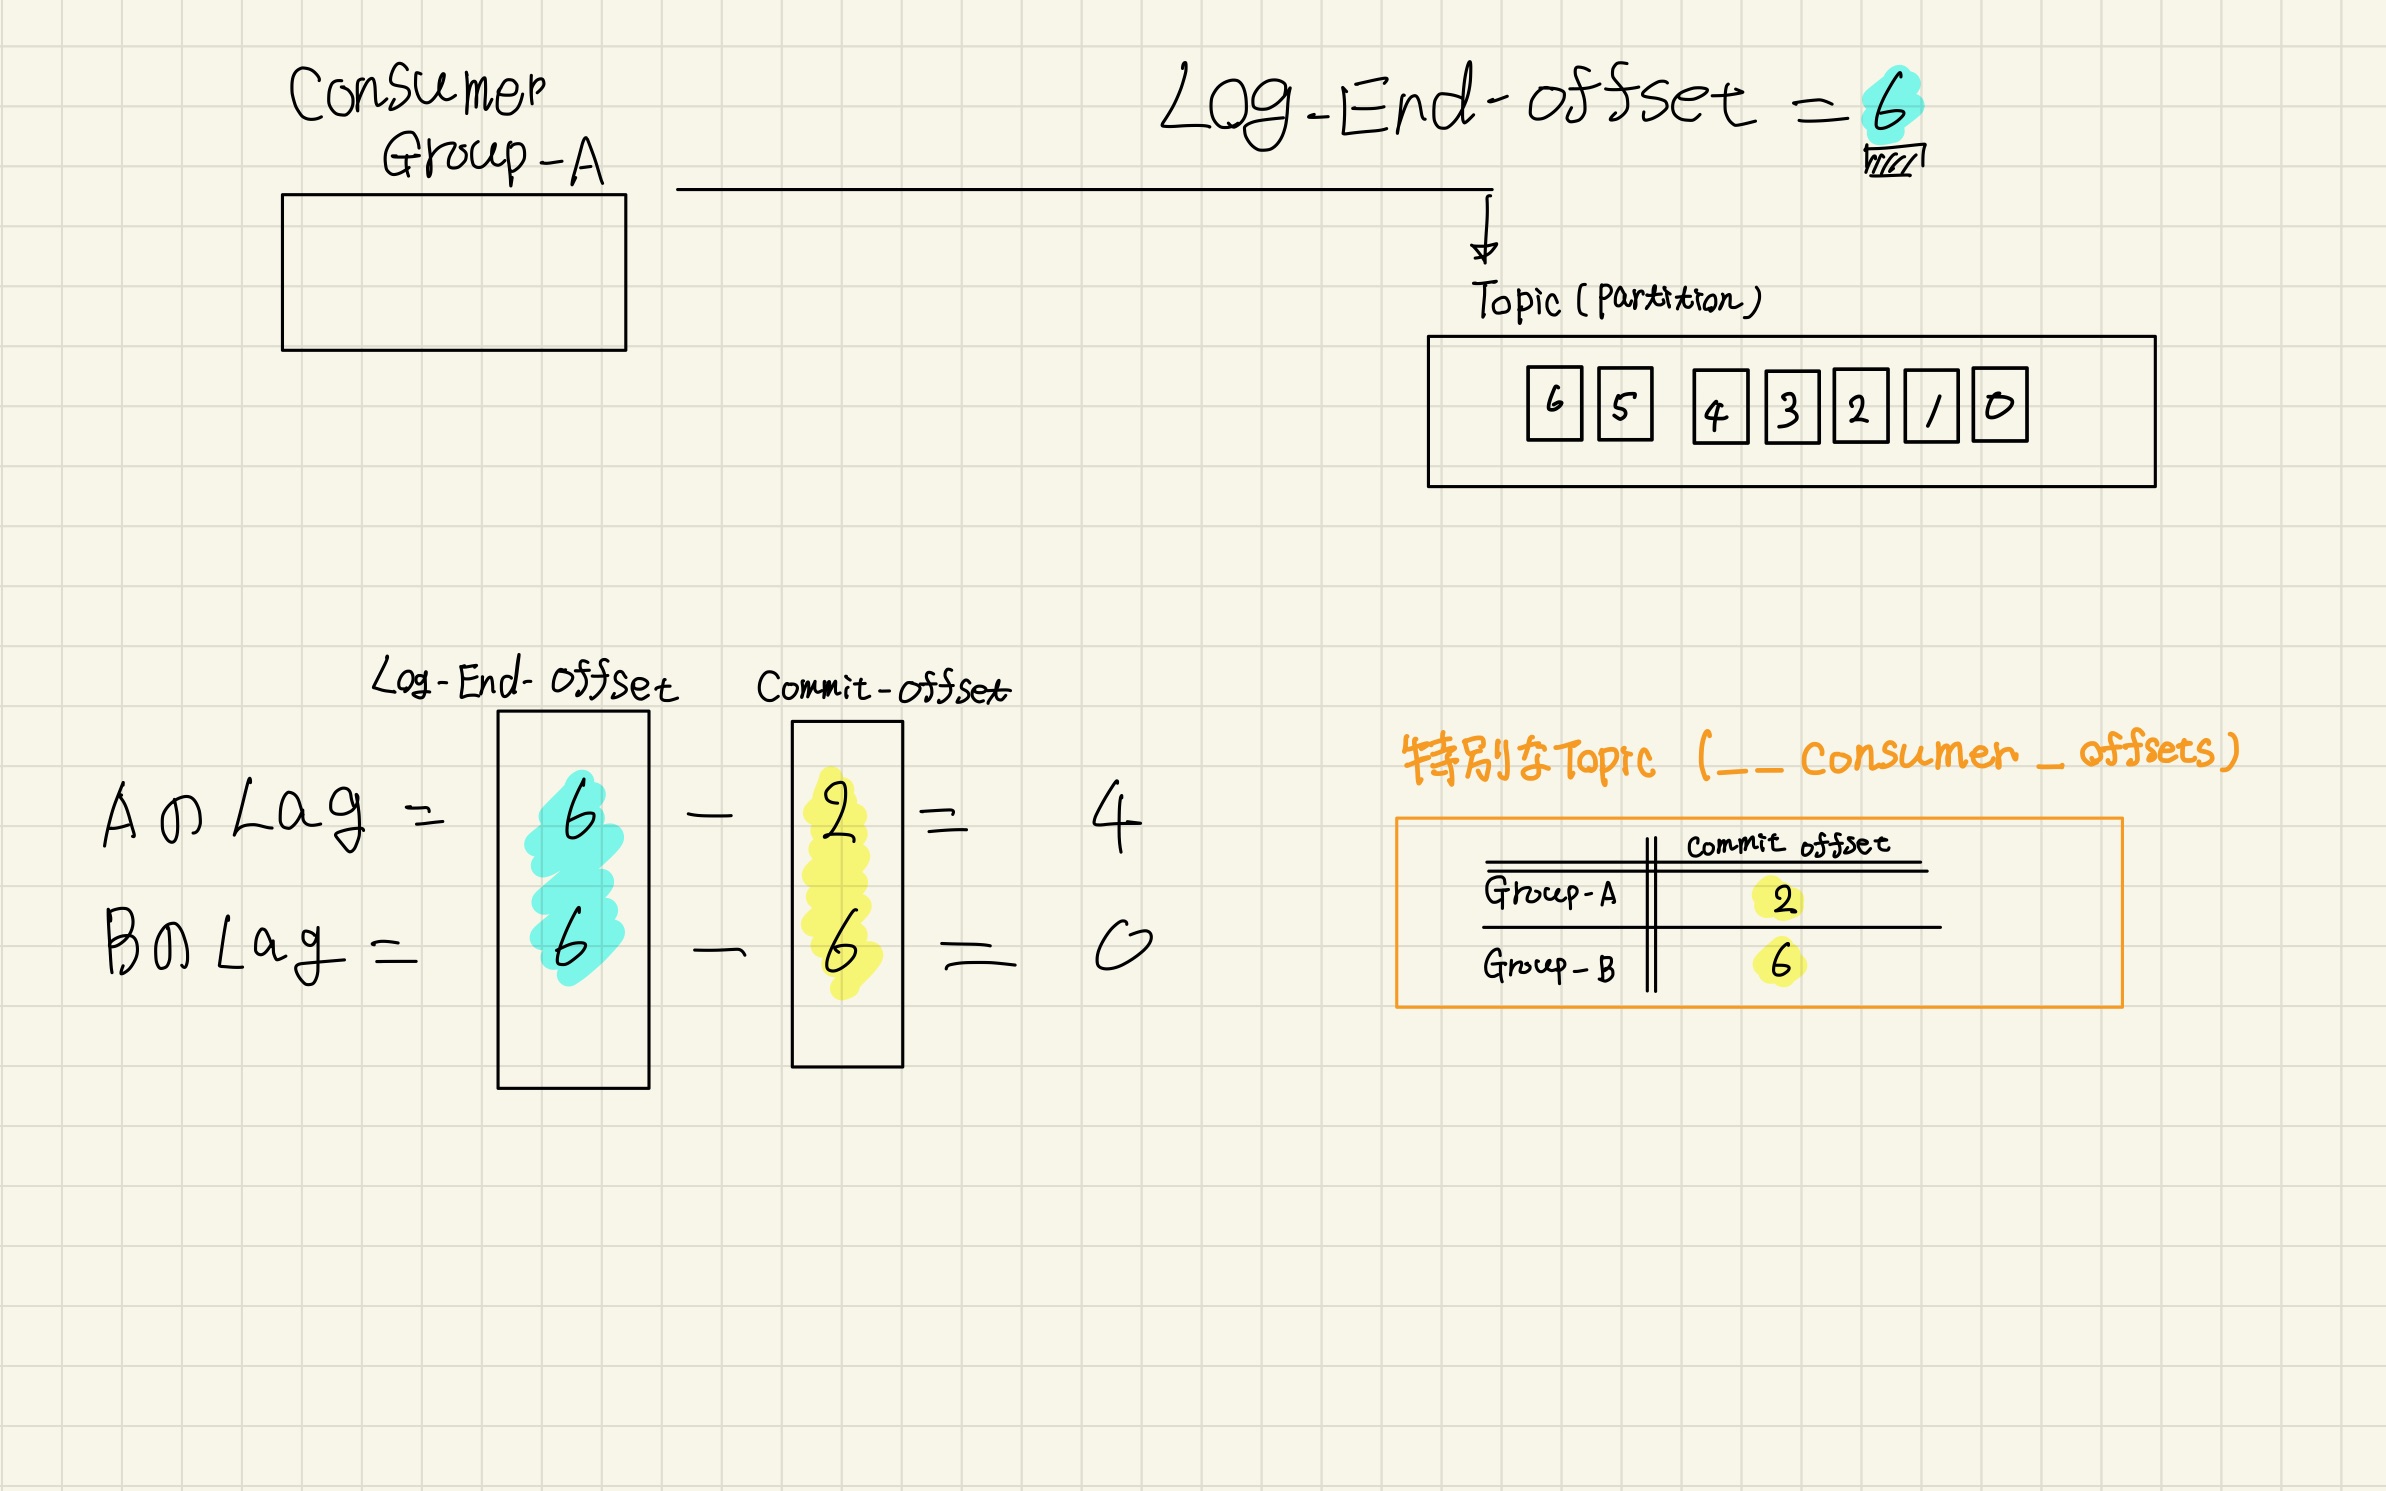 Consumer
Group-A
Log-End-offset = 6
Topic (Partition)
6 5 4 3 2 1 0
Log-End-offset Commit-offset
AのLag = 6 - 2 = 4
BのLag = 6 - 6 = 0
特別なTopic (__consumer_offsets)
Commit offset
Group-A 2
Group-B 6